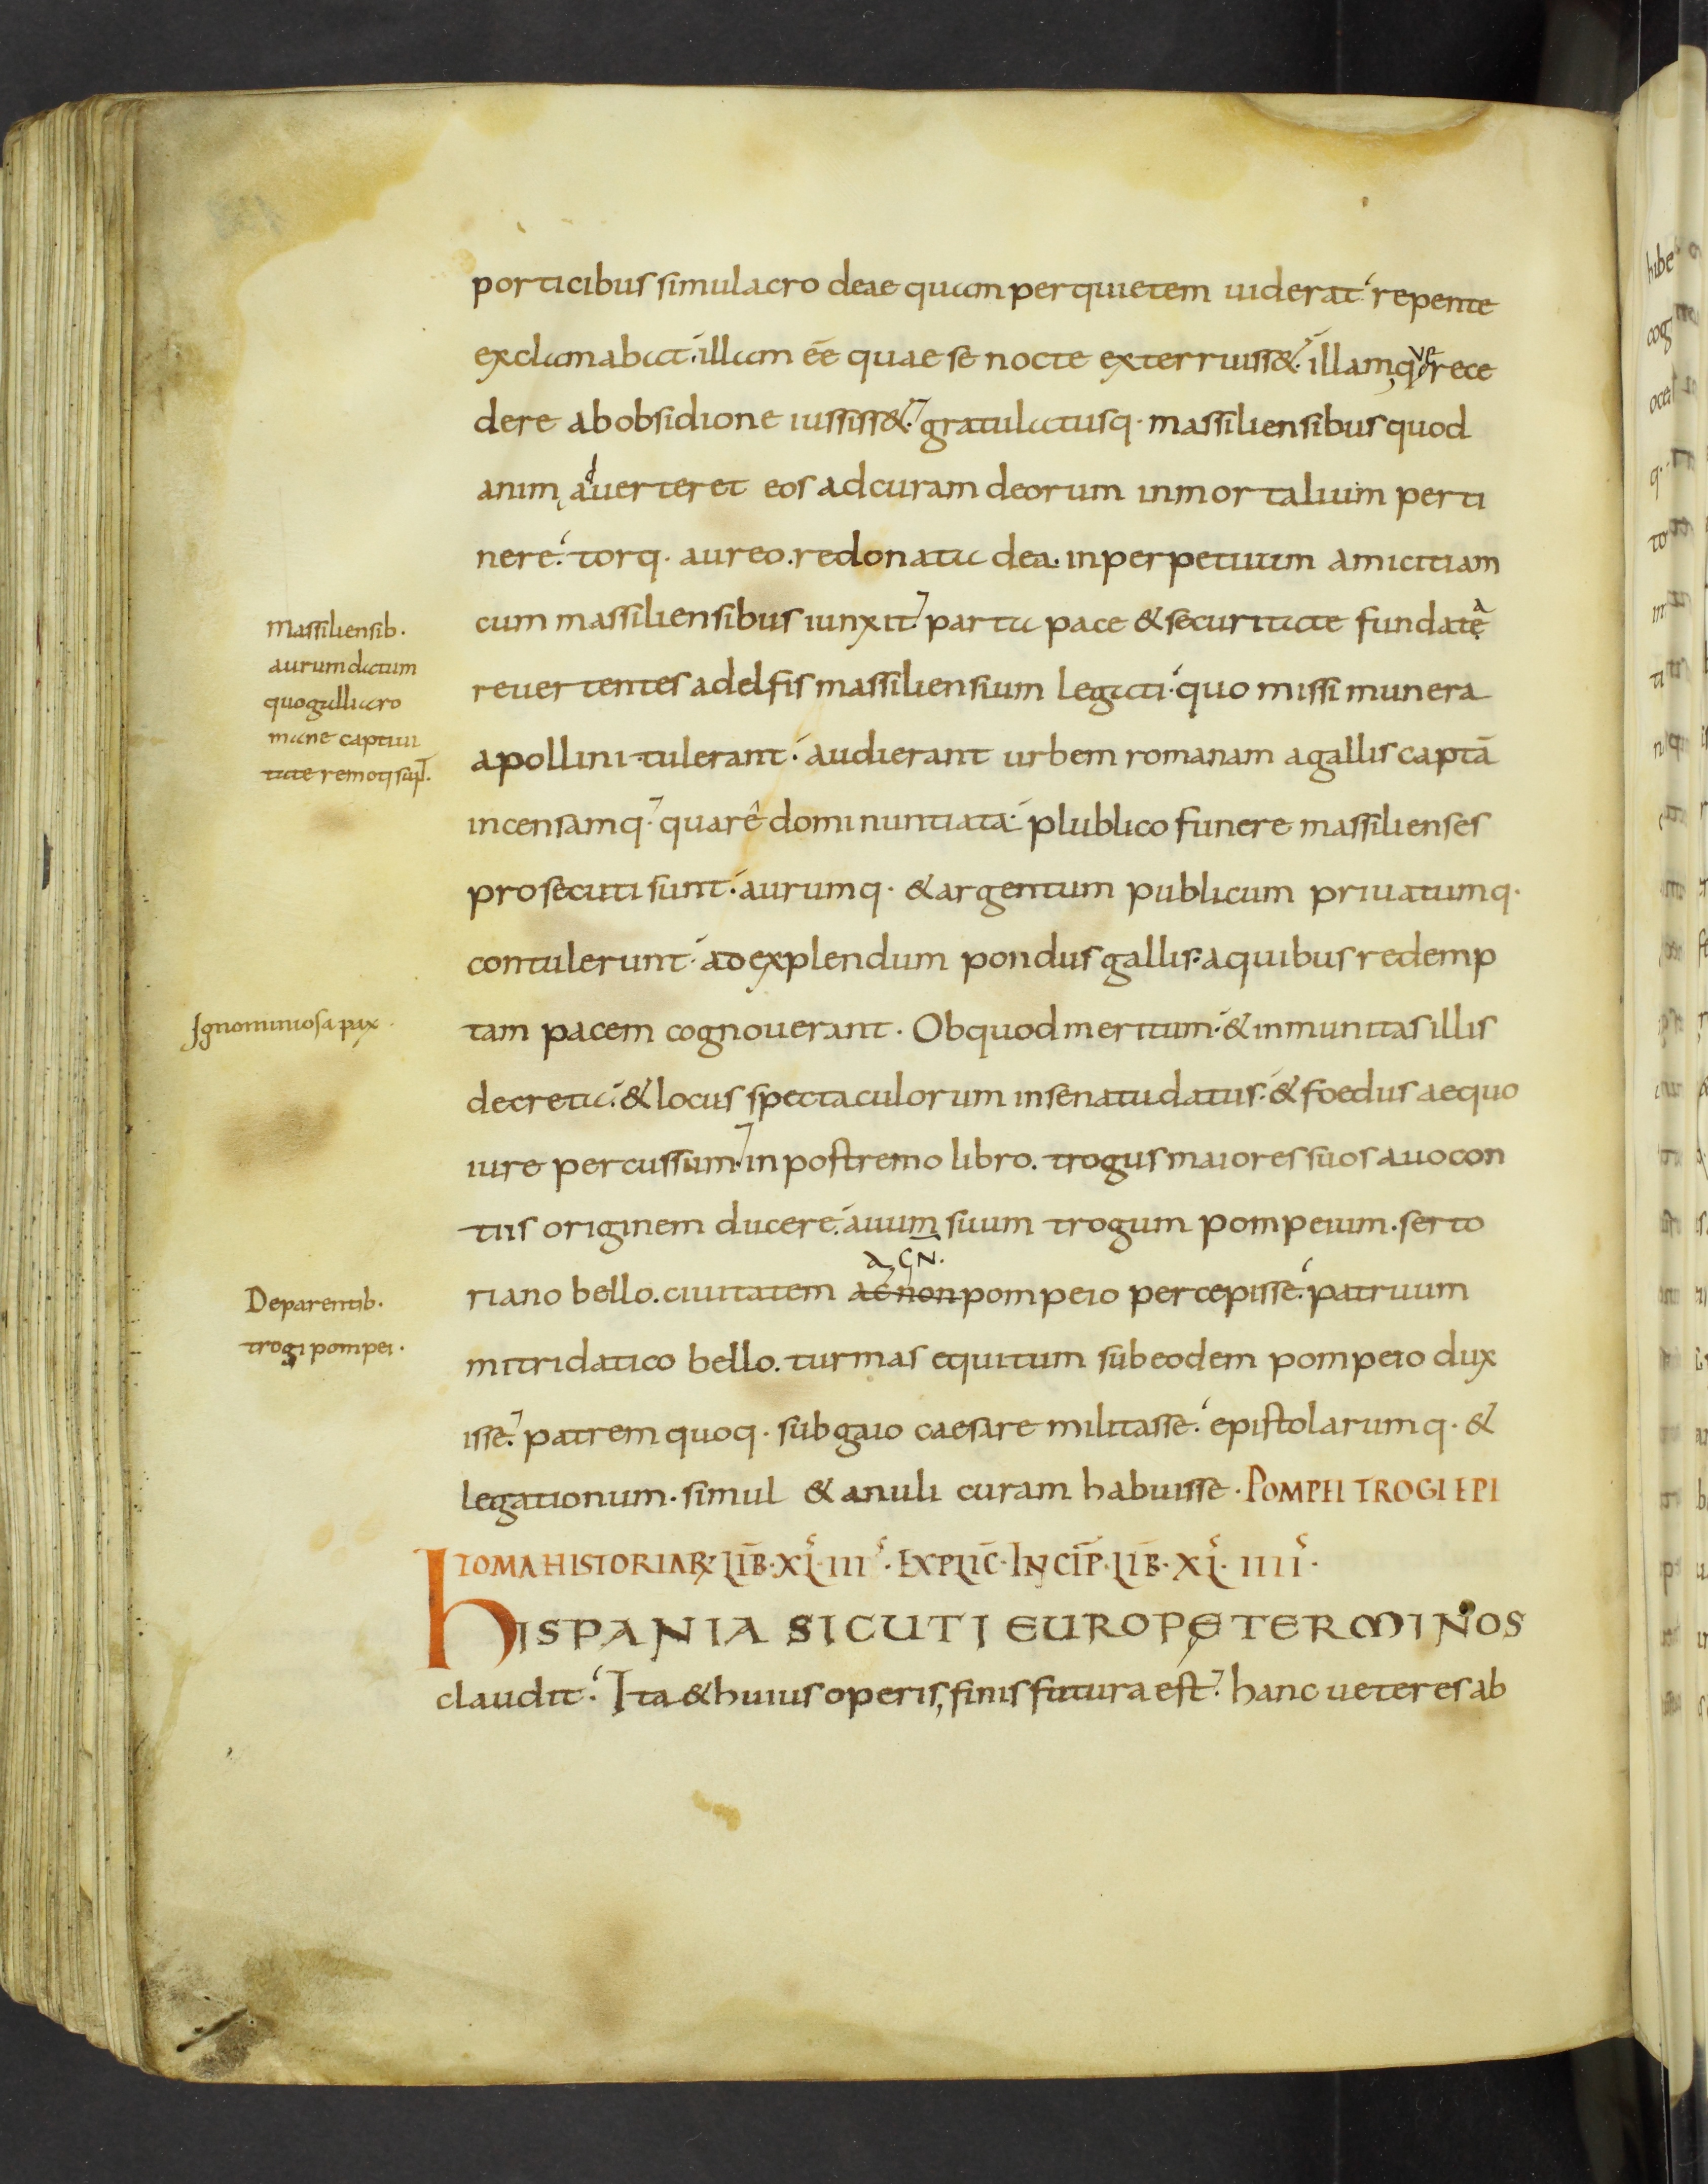 porticibus simulacro deae quam per quietem uiderat repente
exclamabat. illam eē quae se nocte exterruiss&. illamq; ve rece
dere ab obsidione iussiss&. gratulatusq. massiliensibus quod
animę aduerteret eos ad curam deorum inmortalium perti
nere. torq. aureo. redonata dea. in perpetuum amicitiam
cum massiliensibus iunxit. parta pace & securitate fundatę a
reuertentes adelfis massiliensium legati. quo missi munera
apollini tulerant. audierant urbem romanam a gallis captā
incensamq. quarē domi nuntiata. plublico funere massilienses
prosecuti sunt. aurumq. & argentum publicum priuatumq.
contulerunt. ad explendum pondus gallis. a quibus redemp
tam pacem cognouerant. Ob quod meritum. & inmunitas illis
decreta. & locus spectaculorum in senatu datus. & foedus aequo
iure percussum. in postremo libro. trogus maiores suos auocon
tiis originem ducere. auum suum trogum pompeium. serto
a, GN.
riano bello. ciuitatem ac non pompeio percepisse. patruum
mitridatico bello. turmas equitum sub eodem pompeio dux
isse. patrem quoq. sub gaio caesare militasse. epistolarumq. &
legationum. simul & anuli curam habuisse. POMPEI TROGI EPI
TOMA HISTORIARꝜ LIB̄. XL. III. EXPLIC̄. INCIP̄. LIB̄. XL. IIII.
HISPANIA SICUTI EUROPĘ TERMINOS
claudit. Ita & huius operis, finis futura est. hanc ueteres ab
massiliensib.
aurum datum
quo gallia ro
mane captiui
tate
Ignominiosa pax.
De parentib.
trogi pompei.